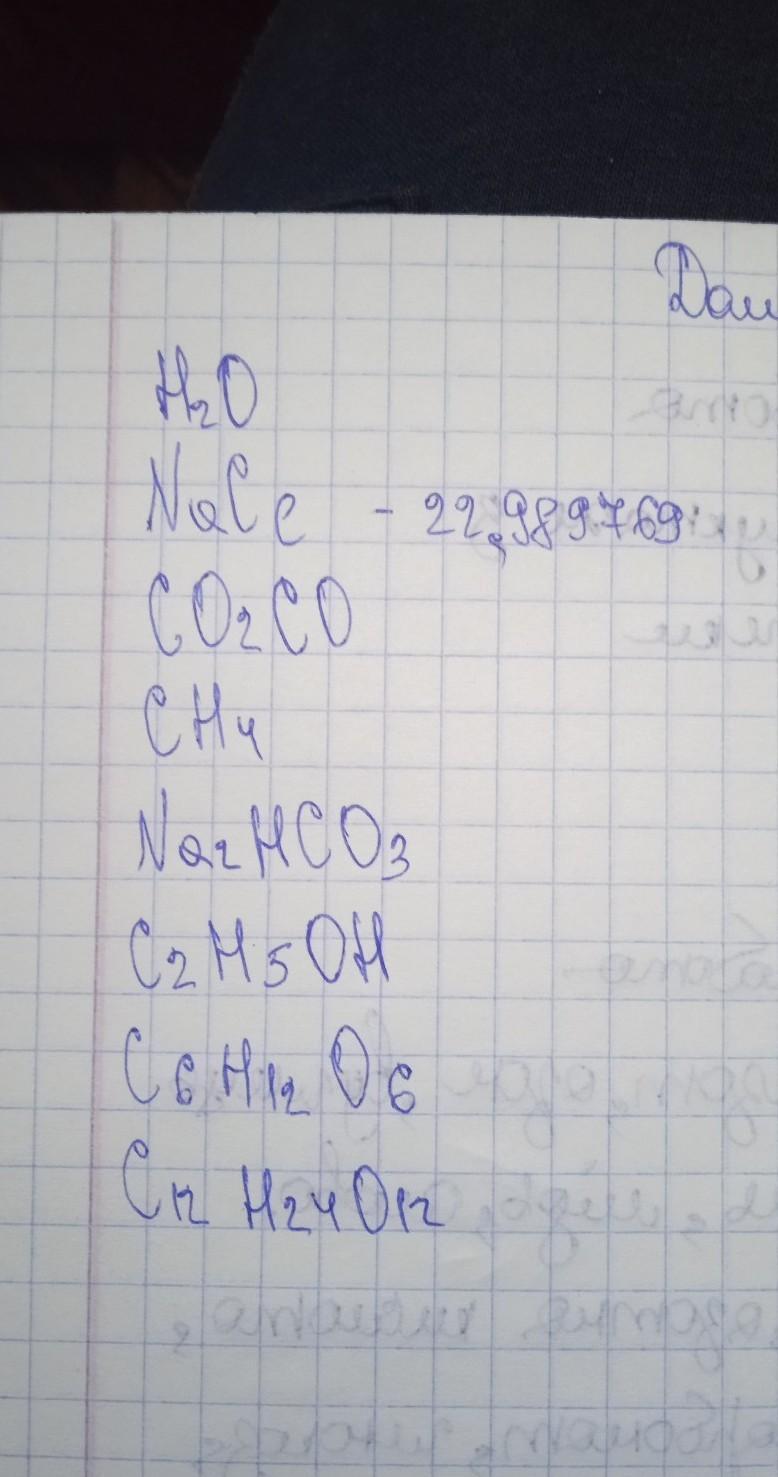 H₂O
NaCl - 22,989769
CO₂CO
CH₄
Na₂HCO₃
C₂H₅OH
C₆H₁₂O₆
C₁₂H₂₄O₁₂